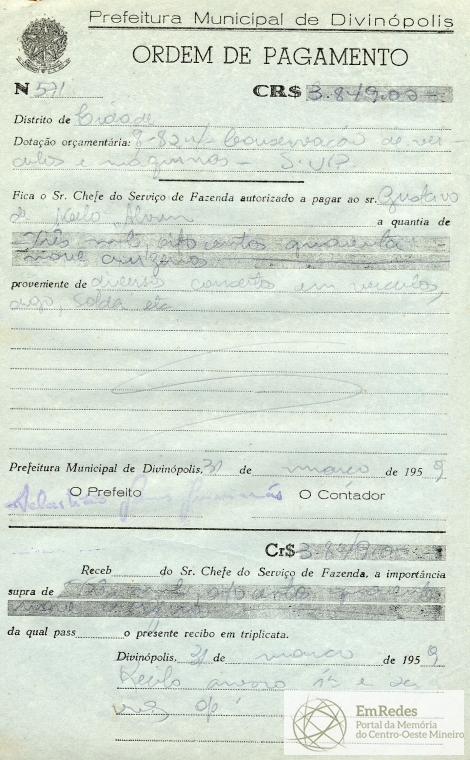 Prefeitura Municipal de Divinópolis
ORDEM DE PAGAMENTO
N 571 CR$ 3.849,00
Distrito de Cidade
Dotação orçamentária: Conservação de vei-
culos e maquinas -
Fica o Sr. Chefe do Serviço de Fazenda autorizado a pagar ao sr. Gustavo
de a quantia de
Três mil, oitocentos quarenta
nove cruzeiros
proveniente de diversos consertos em veiculos,
solda etc
Prefeitura Municipal de Divinópolis, 31 de março de 1959
O Prefeito O Contador
Sebastião Guimarães
Cr$ 3.849,00
Receb do Sr. Chefe do Serviço de Fazenda, a importância
supra de
da qual pass o presente recibo em triplicata.
Divinópolis, 31 de março de 1959
Recibo anexo
EmRedes
Portal da Memória
do Centro-Oeste Mineiro